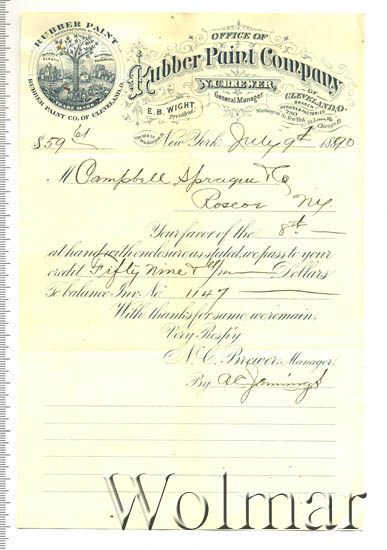 RUBBER PAINT
RUBBER PAINT CO. OF CLEVELAND, O.
TRADE MARK
OFFICE OF
Rubber Paint Company
N.C. BREWER,
General Manager.
OF
CLEVELAND, O.
E. B. WIGHT,
President.
New York July 9th 1890
$59 61
M Campbell Sprague & Co
Roscoe N.Y.
Your favor of the 8th
at hand with enclosure as stated, we pass to your
credit Fifty Nine & 61/100 Dollars
To balance Inv. No. 1147
With thanks for same we remain,
Very Resp'y
N. C. Brewer, Manager,
By
Wolmar